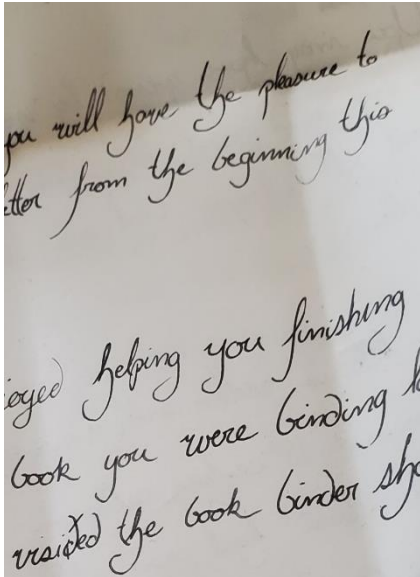 you will have the pleasure to
etter from the beginning this
oyed helping you finishing
book you were binding
visited the book binder sho